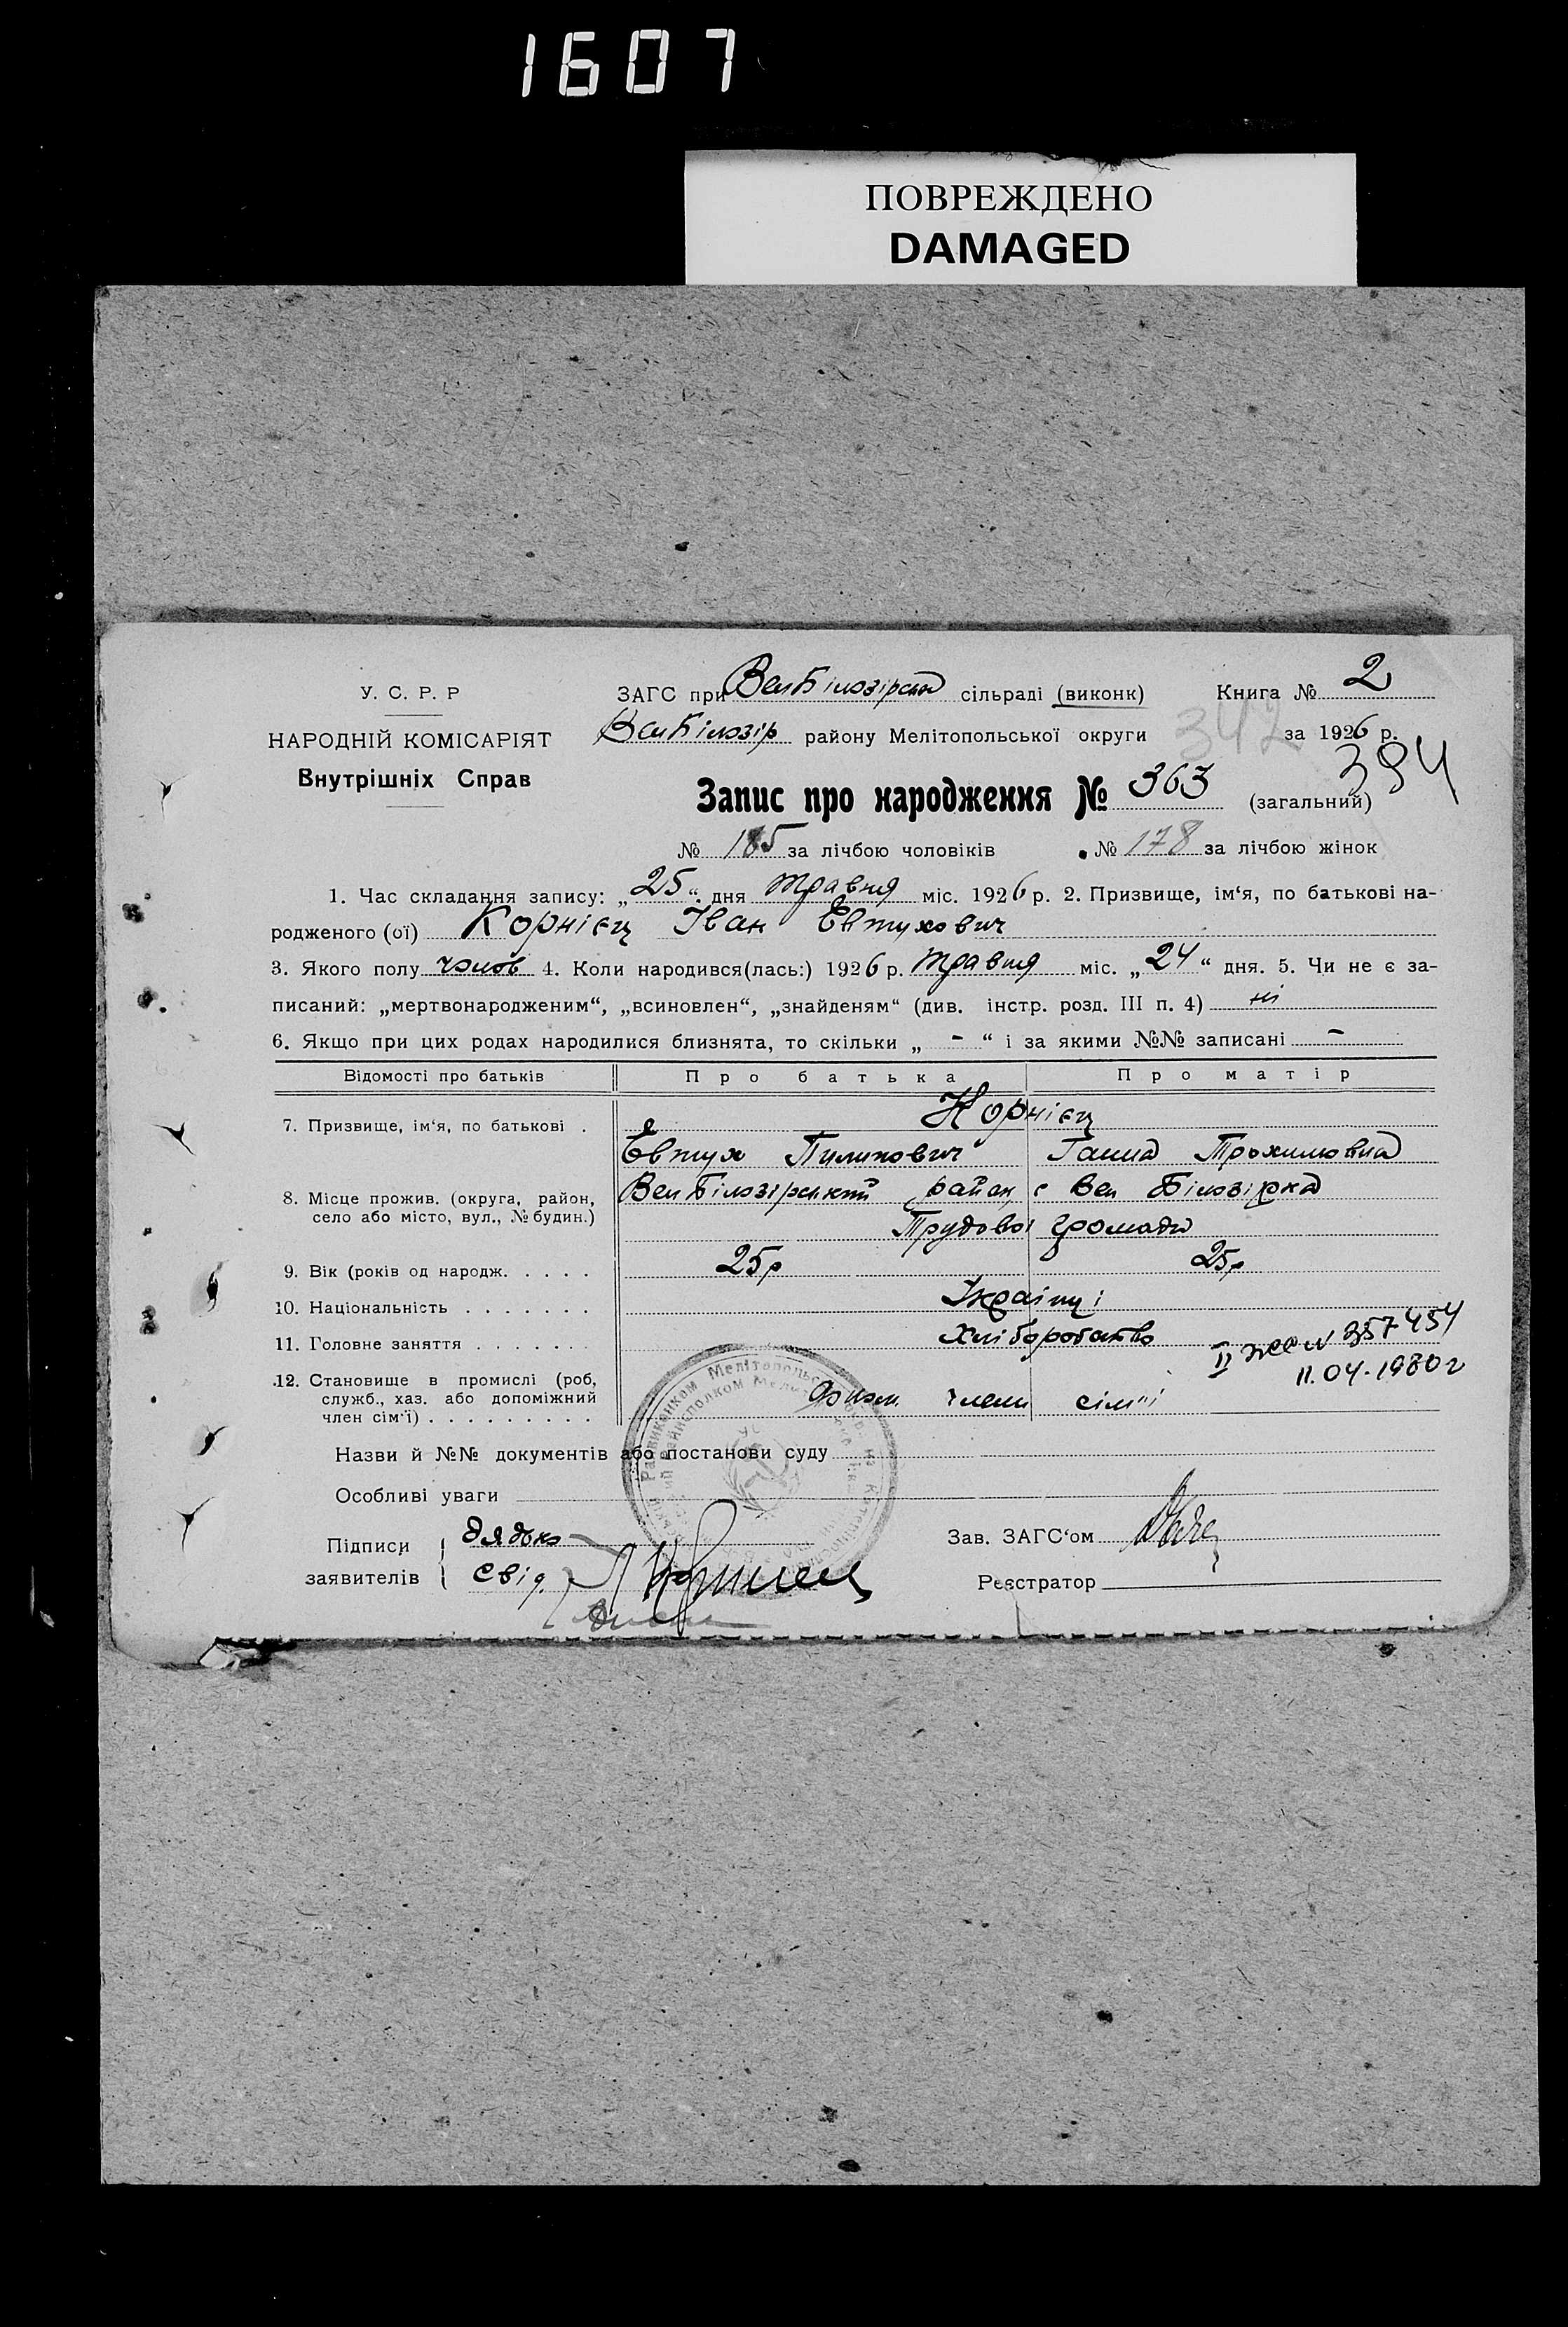 1607
ПОВРЕЖДЕНО
DAMAGED
У. С. Р. Р
НАРОДНІЙ КОМІСАРІЯТ
Внутрішніх Справ
ЗАГС при ВелБілозірськ сільраді (виконк) Книга № 2
ВелБілозір району Мелітопольської округи 342 за 1926 р.
394
Запис про народження № 363 (загальний)
№ 185 за лічбою чоловіків № 178 за лічбою жінок
1. Час складання запису: „25“ дня травня міс. 1926 р. 2. Призвище, ім‘я, по батькові на-
родженого (ої) Корнієц Іван Евтухович
3. Якого полу чолов 4. Коли народився(лась:) 1926 р. травня міс. „24“ дня. 5. Чи не є за-
писаний: „мертвонародженим“, „всиновлен“, „знайденям“ (див. інстр. розд. III п. 4) ні
6. Якщо при цих родах народилися близнята, то скільки „ - “ і за якими №№ записані -
Відомості про батьків Про батька Про матір
7. Призвище, ім‘я, по батькові . Корнієц
Евтух Пилипович Ганна Трохимовна
8. Місце прожив. (округа, район, ВелБілозірський район с Вел Білозірка
село або місто, вул., № будин.) Трудової громади
9. Вік (років од народж. . . . . 25р 25р
10. Національність . . . . . . . Українці
11. Головне заняття . . . . . . . Хліборобство
II жс № 357454
11.04.1980г
12. Становище в промислі (роб,
служб., хаз. або допоміжний члени сім'ї
член сім‘ї) . . . . . . . . .
Назви й №№ документів або постанови суду
Особливі уваги
Підписи дядько Зав. ЗАГС‘ом
заявителів свід. Реєстратор